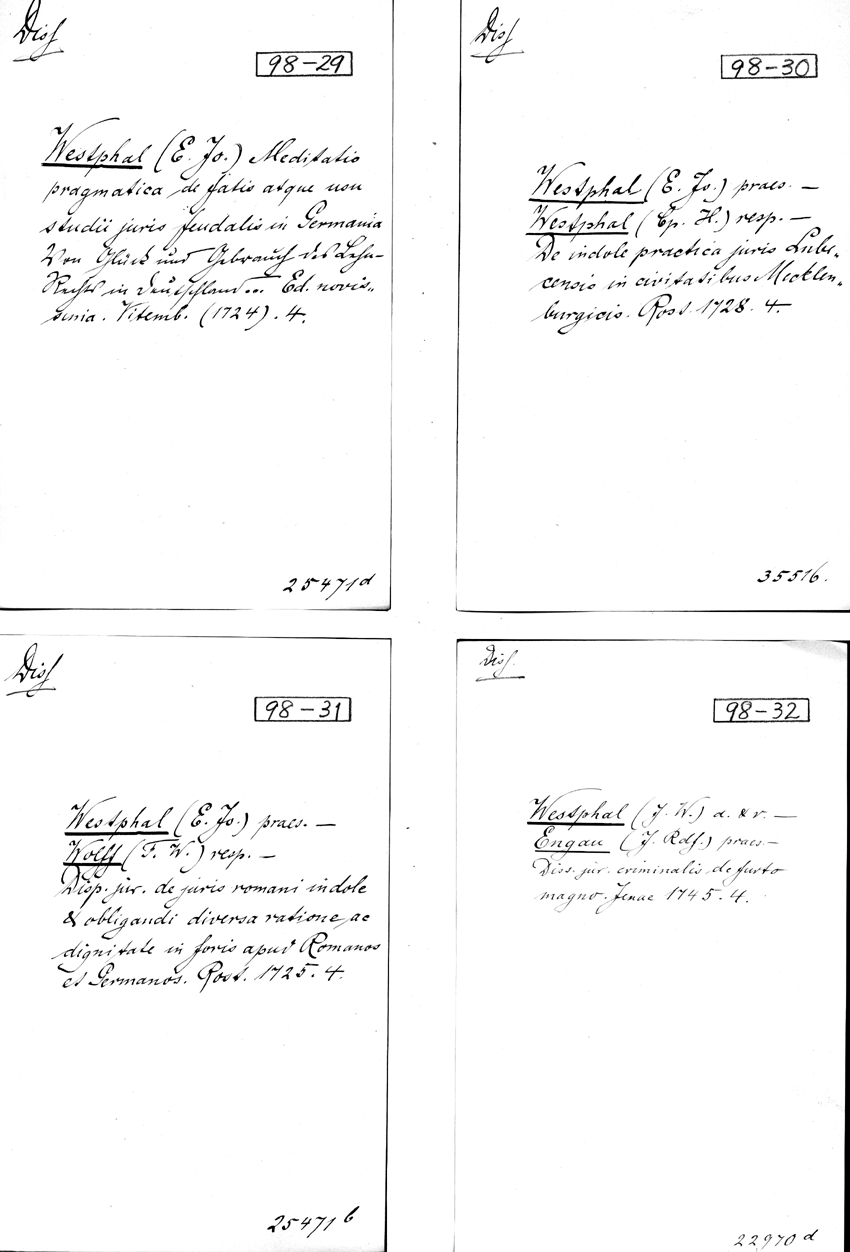 Diss
98-29
Westphal (E. Jo.) Meditatio
pragmatica de fatis atque usu
studii juris feudalis in Germania
Von Glück und Gebrauch des Lehn-
Rechts in Deutschland... Ed. novis-
sima. Vitemb. (1724). 4.
25471d
Diss
98-30
Westphal (E. Jo.) praes. —
Westphal (Cp. H.) resp. —
De indole practica juris Lube-
censis in civitatibus Mecklen-
burgicis. Rost. 1728. 4.
35516.
Diss
98-31
Westphal (E. Jo.) praes. —
Wolff (F. W.) resp. —
Disp. jur. de juris romani indole
& obligandi diversa ratione, ac
dignitate in foris apud Romanos
et Germanos. Rost. 1725. 4.
25471b
Diss.
98-32
Westphal (J. W.) a. & r. —
Engau (J. Rdf.) praes. —
Diss. jur. criminalis de furto
magno. Jenae 1745. 4.
22970d